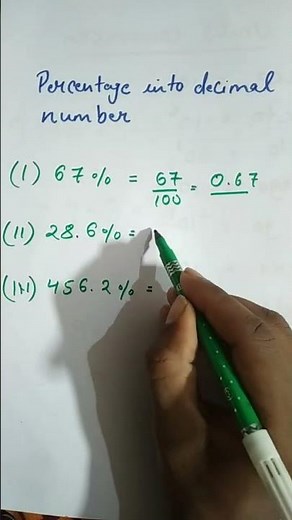 Percentage into decimal
number
(I) 67% = 67/100 = 0.67
(II) 28.6% =
(III) 456.2% =